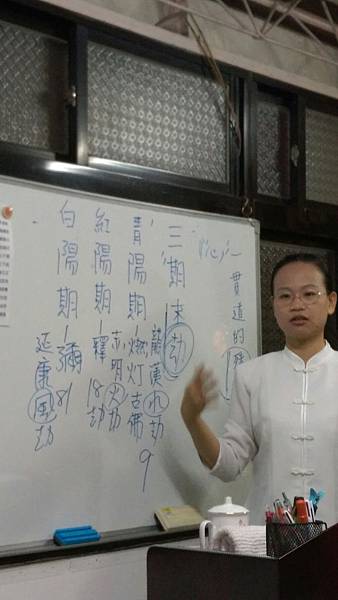 一貫道的
三期末劫
龍漢水劫
青陽期-燃灯古佛 9
赤明火劫
紅陽期-釋 18劫
白陽期-彌 81
延康風劫